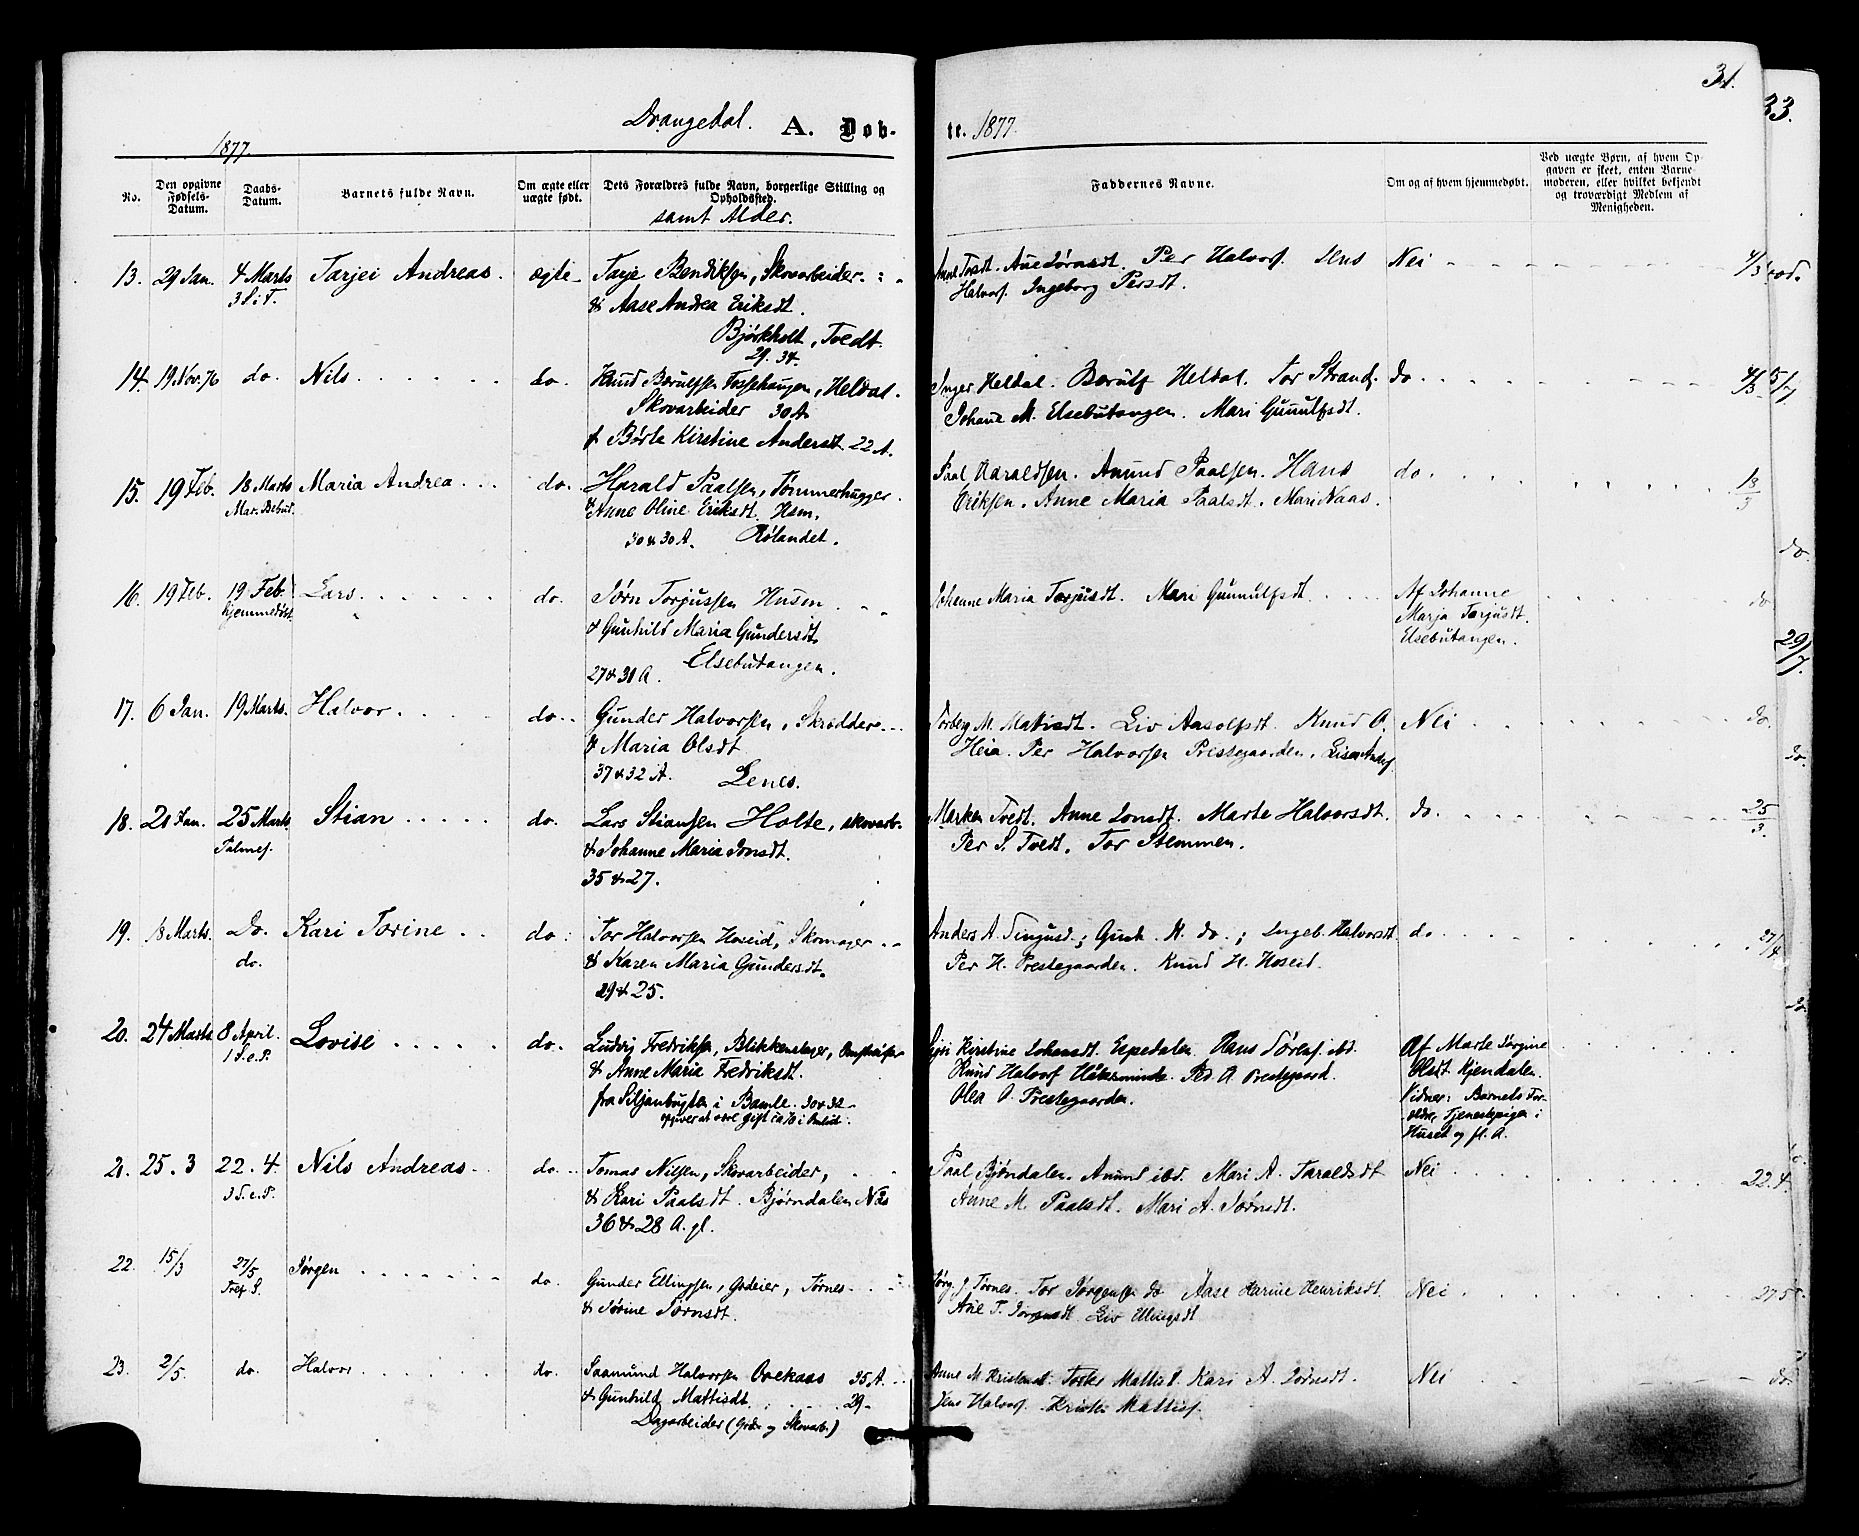 31.
33.
Drangedal. A. Døb-
te. 1877.
1877
No.
Den opgivne Fødsels-Datum.
Daabs-Datum.
Barnets fulde Navn.
Om ægte eller uægte født.
Dets Forældres fulde Navn, borgerlige Stilling og Opholdssted.
samt Alder.
Faddernes Navne.
Om og af hvem hjemmedøbt.
Ved uægte Børn, af hvem Opgaven er skeet, enten Barnemoderen, eller hvilket bekjendt og troværdigt Medlem af Menigheden.
13. 29 Jan. 4 Marts Tarjei Andreas. ægte Tarje Bendiksen, Skovarbeider
3 S i F.
& Aase Andrea Eriksdt.
Bjørkholt, Tvedt.
29. 34.
Anne Tvedt. Per Halvors. Jens Nei 4/3
Halvors. Ingeborg Persdt.
14. 19 Nov. 76 do. Nils do. Knud Børulfsen Fossehaugen, Heldal.
Skovarbeider 30 A.
& Børte Kirstine Andersdt. 22 A.
Inger Heldal. Børulf Heldal. Tor Strand. do. 4/3 5/7
Johane M. Elsebutangen. Mari Gunulfsdt.
15. 19 Feb. 18 Marts Maria Andrea do. Harald Paalsen, Tømmerhugger.
Mar. Bebud.
& Anne Oline Eriksdt. Hsm.
30 & 30 A. Rølandet.
Paal Haraldsen. Amund Paalsen. Hans do. 18/3
Eriksen. Anne Maria Paalsdt. Mari Naas.
do.
16. 19 Feb. 19 Feb. Lars do. Jørn Torjussen Husm.
hjemmedøbt
& Gunhild Maria Gundersdt.
27 & 31 A. Elsebutangen.
Johanne Maria Torjusdt. Mari Gunnulfsdt. Af Johanne do
Marja Torjusdt.
Elsebutangen.
29/7.
17. 6 Jan. 19 Marts. Halvor. do. Gunder Halvorsen, Skrædder
& Maria Olsdt
37 & 32 A. Lenes.
Torberg M. Matisdt. Liv Aasolfsdt. Knud A. Nei do.
Heia. Per Halvorsen Prestegaarden.
do.
18. 21 Jan. 25 Marts Stian do. Lars Stiansen Holte, skovarb.
Palmes.
& Johanne Maria Jonsdt.
35 & 27.
Marken Tvedt. Anne Jonsdt. Marte Halvorsdt. do. 25/3.
Per S. Tvedt. Tor Stemmen.
19. 18 Marts. Do. Kari Torine do: Tor Halvorsen Hoseid, Skomager
do.
& Karen Maria Gundersdt.
29 & 25.
Anders A. ; Gunh. H. do.; Ingeb. Halvorsdt. do. 27/4
Per H. Prestegaarden. Knud H. Hoseid.
do
20. 24 Marts 8 April. Lovise do. Ludvig Fredriksen, Blikkenslager,
1 S. e. P.
& Anne Maria Fredriksdt.
fra Siljanbugten i Bamle. 30 & 32
Kirstine Johansdt. Espedalen. Hans Sørens. ibd.
Knud Halvors
Olea O. Prestegaarden.
Af Marte Jørgine
Olsdt. Kjendalen.
Vidner: Barnets Forældre, Tjenestepigen i
Huset og fl. A.
21. 25. 3 22. 4. Nils Andreas do. Tomas Nilsen, Skovarbeider,
3 S. e. P.
& Kari Paalsdt. Bjørndalen Næs
36 & 28 A. gl.
Paal Bjøndalen. Amund ibd. Mari A. Taraldsdt Nei 22.4.
Anne M. Paalsdt. Mari A. Jørnsdt.
22. 15/3 27/5 Jørgen do. Gunder Ellingsen, Gaardeier, Tørnes
Tref. S.
& Jørine Jørnsdt.
Jørg. J Tørnes. Tor Jørgens. do Aase Karine Henriksdt. Nei 27.5
Ane T. Jørgensdt Liv Ellingsdt
23. 2/5 do. Halvor do. Saamund Halvorsen Ovekaas 35 A.
& Gunhild Mattisdt. 29
Dagarbeider (Grds og Skovarb.)
Anne M. Kristensdt. Torkes Mattisd. Kari A. Jørnsdt. Nei do.
Jens Halvors. Kristen Mattiss.